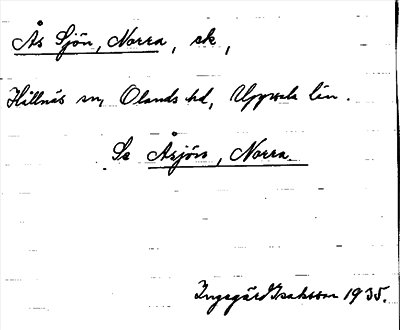 Ås Sjön, Norra, sk,
Hållnäs sn, Olands hd, Uppsala län.
Se Åsjön, Norra
Ingegärd Isaksson 1935.